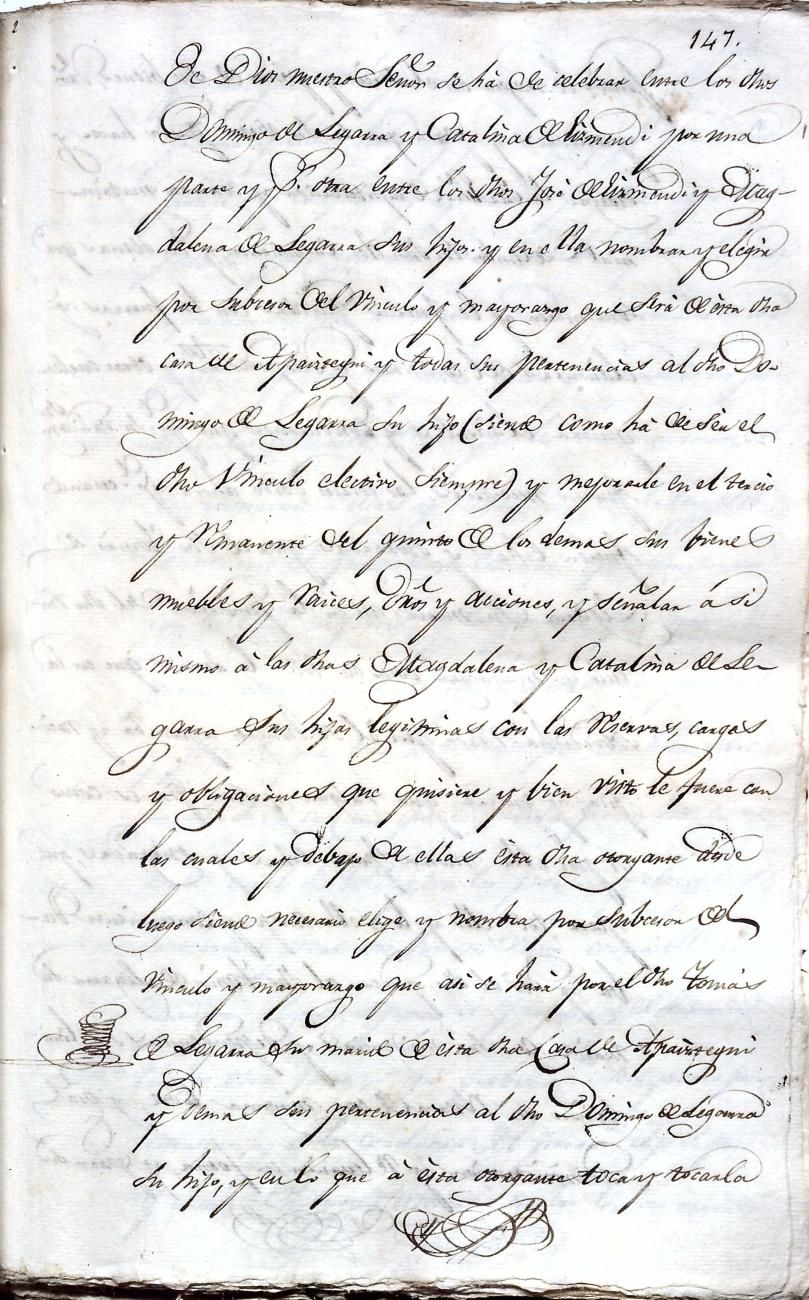 147.
de Dios nuestro Señor se há de celebrar entre los dhos
Domingo de Legarra y Catalina de Lizmendi por una
parte y pr. otra entre los dhos José de Lizmendi y Mag-
dalena de Legarra sus hijos. y en ella nombrar y elegir
por subcesor del Vinculo y mayorazgo que será de ésta dha
casa de Apaiztegui y todas sus pertenencias al dho Do-
mingo de Legarra su hijo (siendo como há de sér el
dho Vinculo electivo siempre) y mejorarle en el tercio
y rrmanente del quinto de los demas sus bienes
muebles y raices, dros y acciones, y señalar á si
mismo á las dhas Magdalena y Catalina de Le-
garra sus hijas legitimas con las reservas, cargas
y obligaciones que quisiere y bien visto le fuere con
las cuales y debajo de ellas ésta dha otorgante desde
luego siendo necesario elige y nombra por subcesor del
Vinculo y mayorazgo que asi se hará por el dho Tomás
de Legarra su marido de ésta dha Casa de Apaiztegui
y demas sus pertenencias al dho Domingo de Legarra
su hijo, y en lo que á ésta otorgante toca y tocarla